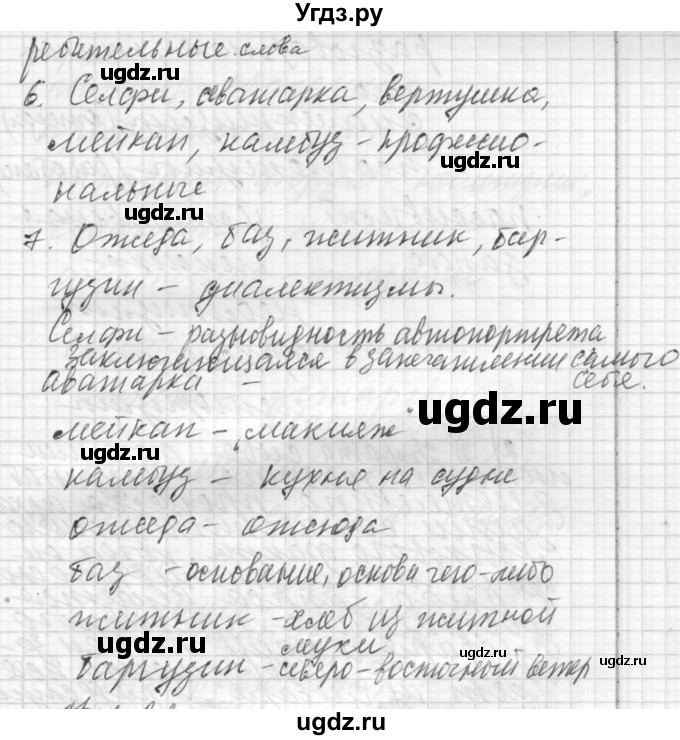 Угдз.ру
ребительные слова
ugdz.ru
6. Селфи, аватарка, вертушка,
мейкап, камбуз - професcио-
ugdz.ru
нальные
ugdz.ru
7. Ожеда, баз, житник, бар-
гузин - диалектизмы.
Селфи - разновидность автопортрета
заключающаяся в запечатлении самого
аватарка - себя.
ugdz.ru
мейкап - макияж
ugdz.ru
камбуз - кухня на судне
ожеда - ожсюда
баз - основание, основа чего-либо
житник - хлеб из житной
ugdz.ru
муки
баргузин - северо-восточный ветер
ugdz.ru
ugdz.ru